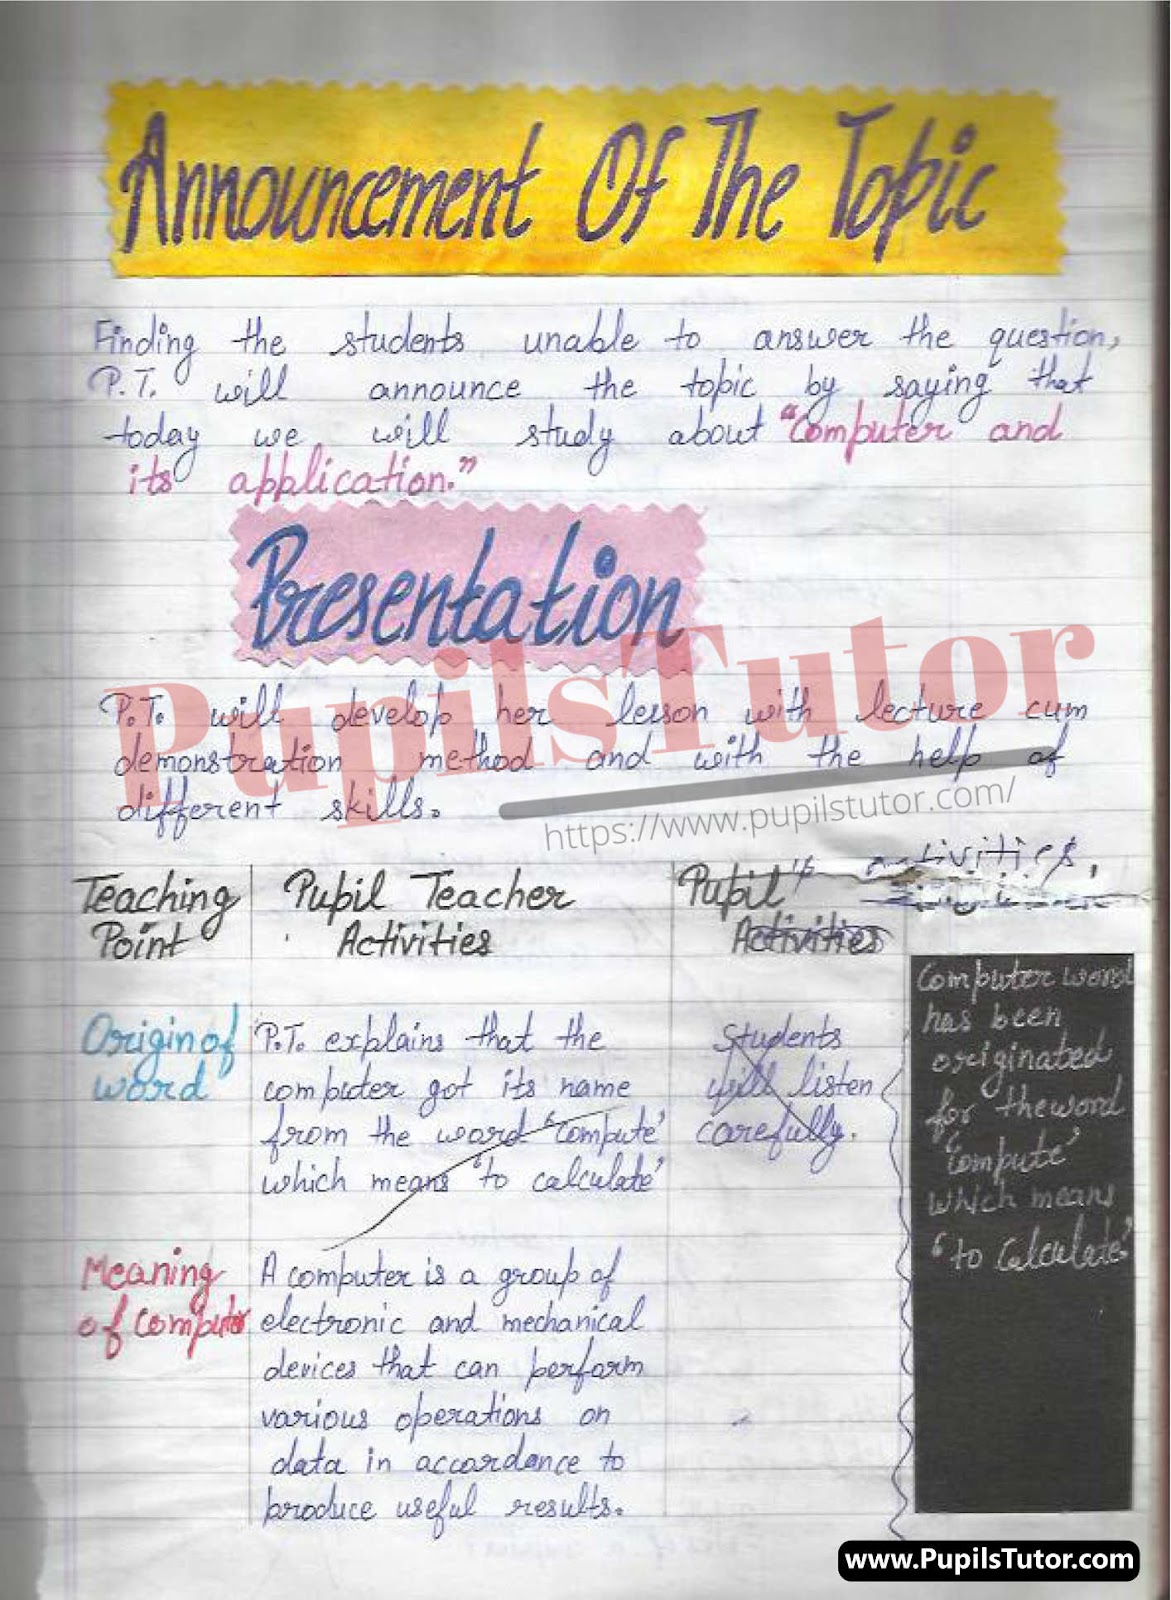 Announcement Of The Topic
Finding the students unable to answer the question,
P.T. will announce the topic by saying that
today we will study about "Computer and
its application."
Presentation
PupilsTutor
P.T. will develop her lesson with lecture cum
demonstration method and with the help of
different skills.
https://www.pupilstutor.com/
Teaching
Point
Pupil Teacher
Activities
Pupil's activities.
Activities
Origin of
word
P.T. explains that the
computer got its name
from the word 'Compute'
which means 'to calculate'
Students
will listen
carefully.
Computer word
has been
originated
for the word
'Compute'
which means
'to Calculate'
Meaning
of Computer
A computer is a group of
electronic and mechanical
devices that can perform
various operations on
data in accordance to
produce useful results.
www.PupilsTutor.com